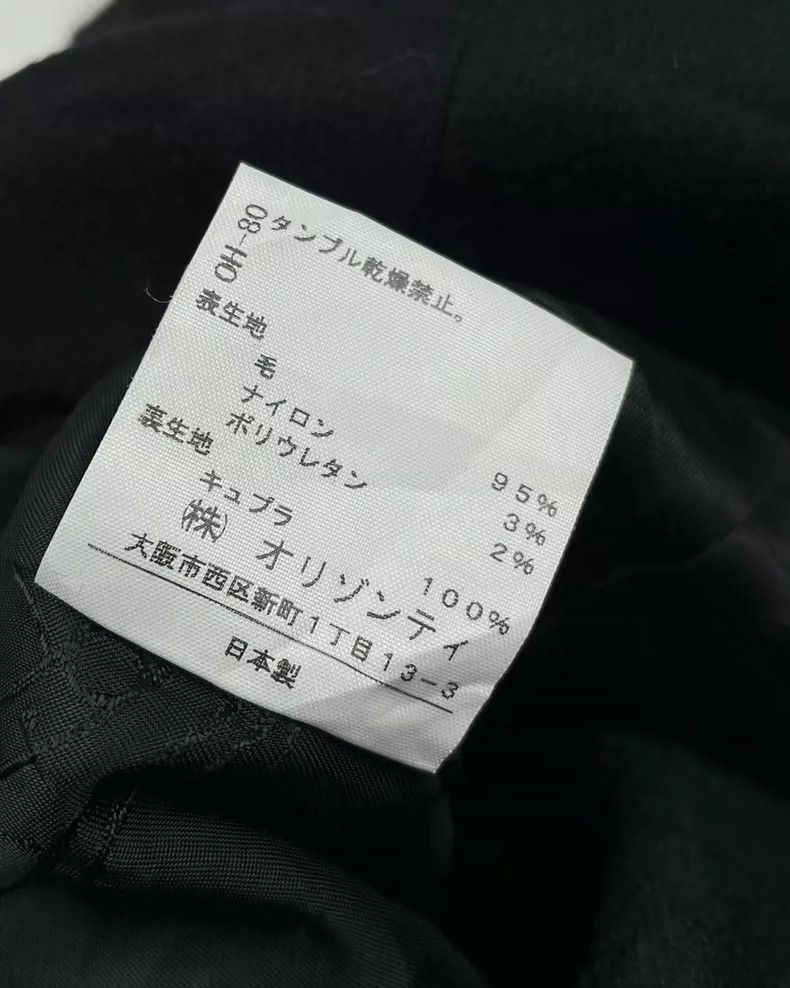 08-HO
タンブル乾燥禁止。
表生地
毛 95%
ナイロン 3%
ポリウレタン 2%
裏生地
キュプラ 100%
㈱ オリゾンティ
大阪市西区新町1丁目13-3
日本製